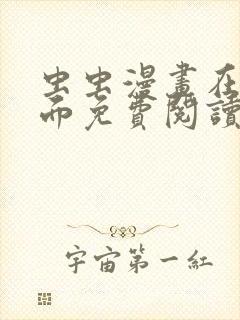 虫虫漫畫在
而免費閱讀
宇宙第一紅